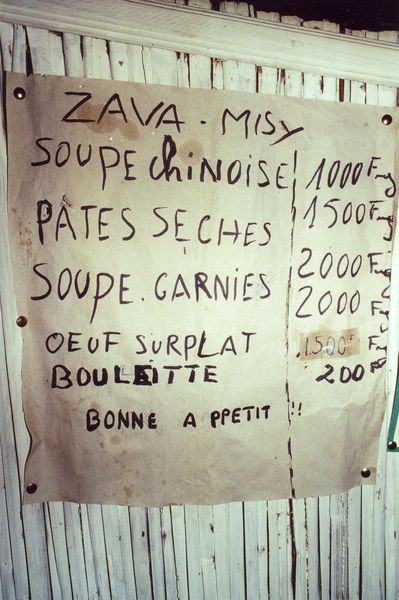 ZAVA - MISY
SOUPE chiNOISE 1000 Fmg
PÂTES SECHES 1500 Fmg
2000 Fmg
SOUPE. GARNIES 2000 Fmg
OEUF SURPLAT 1500F Fmg
BOULETTE 200 Fmg
BONNE A PPETIT !!